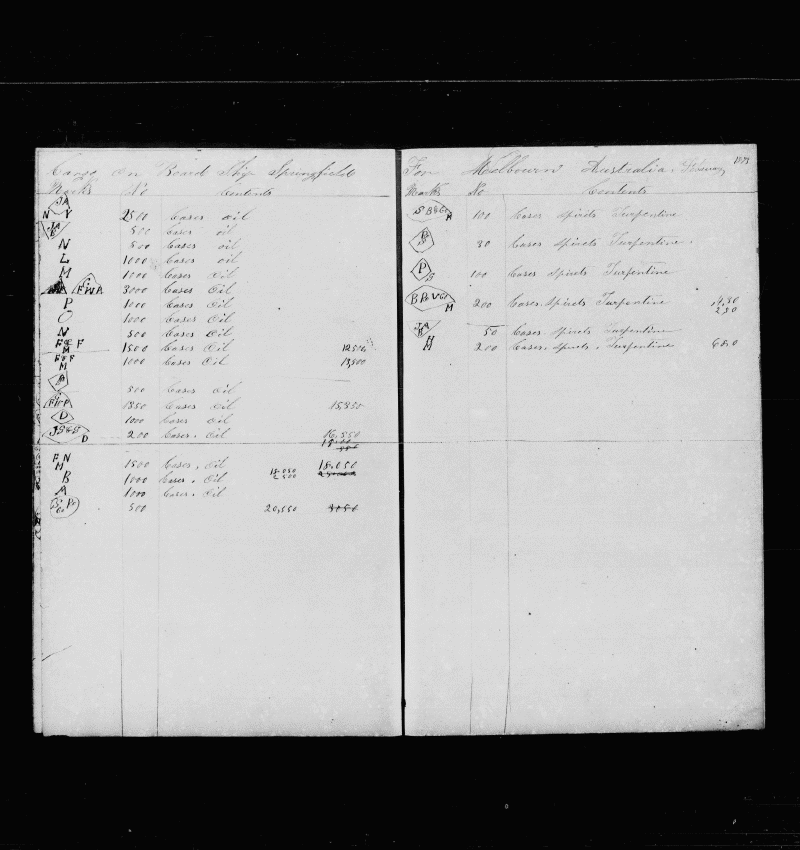 Cargo on Board Ship Springfield
Marks No Contents
JA
N Y 2500 Cases oil
500 Cases oil
N 500 Cases oil
L 1000 Cases oil
M 1000 Cases Oil
FWA 3000 Cases Oil
P 1000 Cases Oil
O 1000 Cases Oil
N 500 Cases Oil
F & F
M 1500 Cases Oil 12,500
F & F
M 1000 Cases Oil 13,500
500 Cases Oil
1850 Cases Oil 15,850
D 1000 Cases Oil
D 200 Cases Oil 16,550
F N
M 1500 Cases Oil 18,050
B 1000 Cases Oil 18,050
2,500
A 1000 Cases Oil
500 20,550 3050
For Melbourn Australia
Marks No Contents
M 100 Cases Spirits Turpentine
30 Cases Spirits Turpentine
P
B 100 Cases Spirits Turpentine
M 200 Cases Spirits Turpentine
250
50 Cases Spirits Turpentine
H
M 200 Cases Spirits Turpentine 680